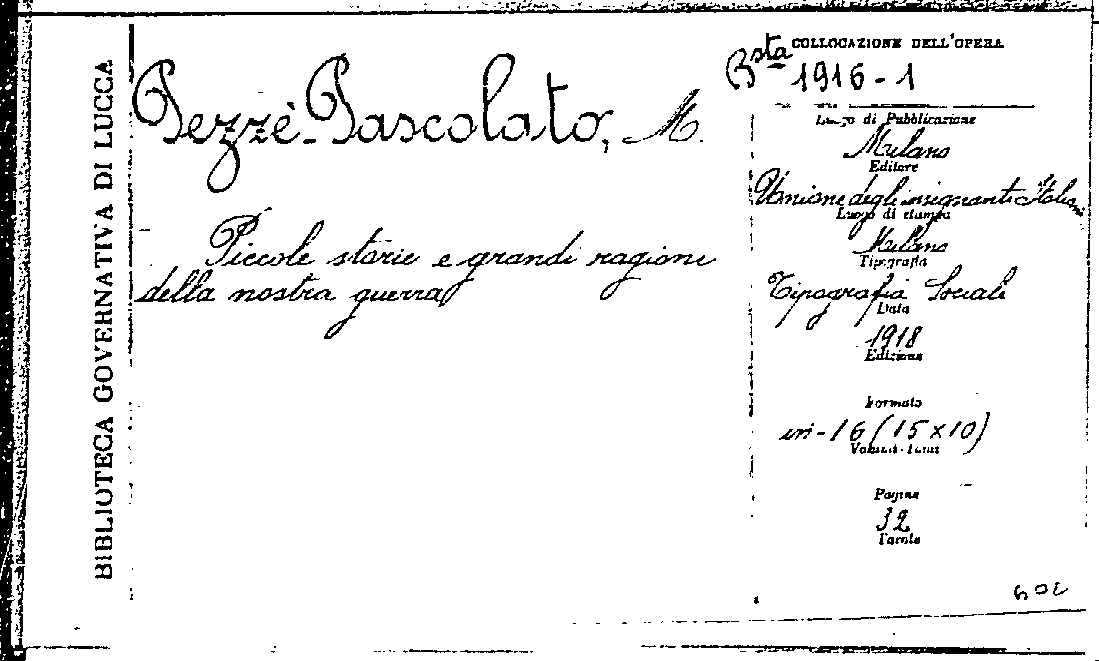 BIBLIOTECA GOVERNATIVA DI LUCCA
Pezzè-Pascolato, M.
Piccole storie e grandi ragioni
della nostra guerra
COLLOCAZIONE DELL'OPERA
Bsta 1916-1
Luogo di Pubblicazione
Milano
Editore
Unione degli insegnanti Italiani
Luogo di stampa
Milano
Tipografia
Tipografia Sociale
Data
1918
Edizione
Formato
in-16 (15×10)
Volumi-Tomi
Pagine
32
Tavole